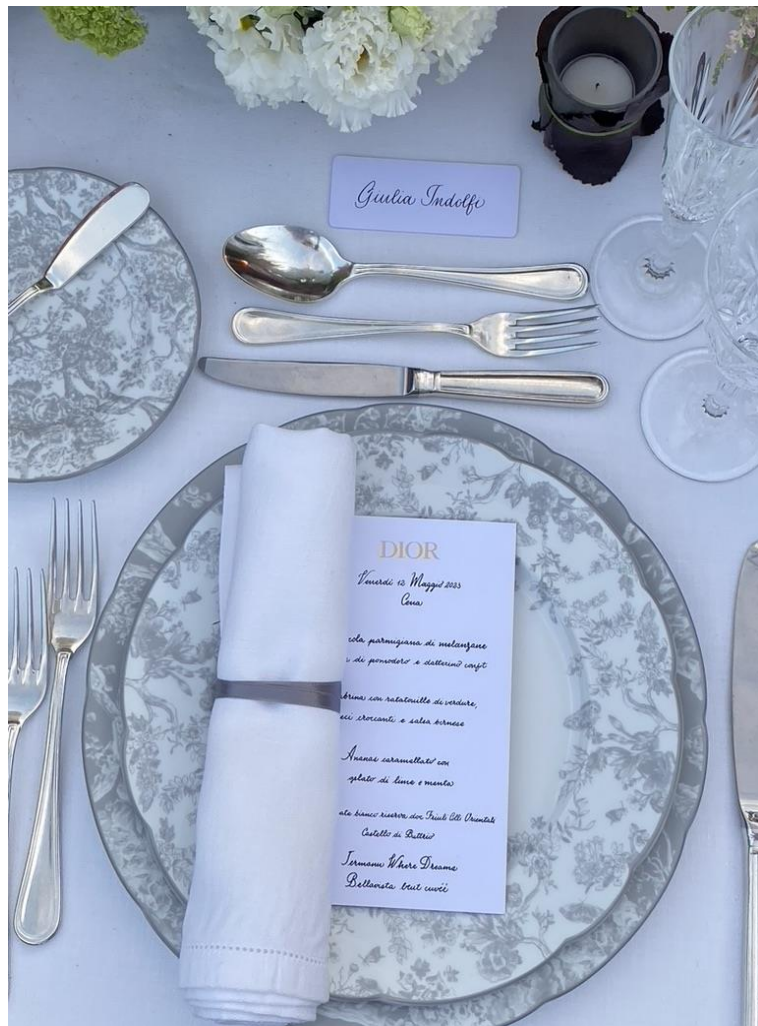 Giulia Indolfi
DIOR
Venerdì 12 Maggio 2023
Cena
cola parmigiana di melanzane
di pomodoro e datterino confit
brina con ratatouille di verdure,
eci croccanti e salsa bernese
Ananas caramellato con
gelato di lime e menta
ato bianco riserva doc Friuli Colli Orientali
Castello di Buttrio
Jermann Where Dreams
Bellavista brut cuvée